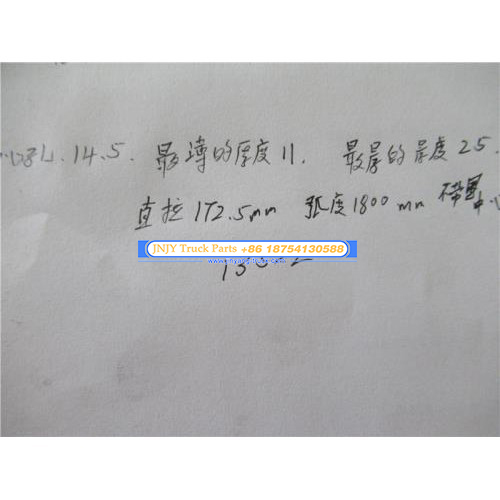 心孔.14.5. 最薄的厚度11. 最厚的厚度25.
直拉172.5mm 弧度1800mm 不带
JNJY Truck Parts +86 18754130588